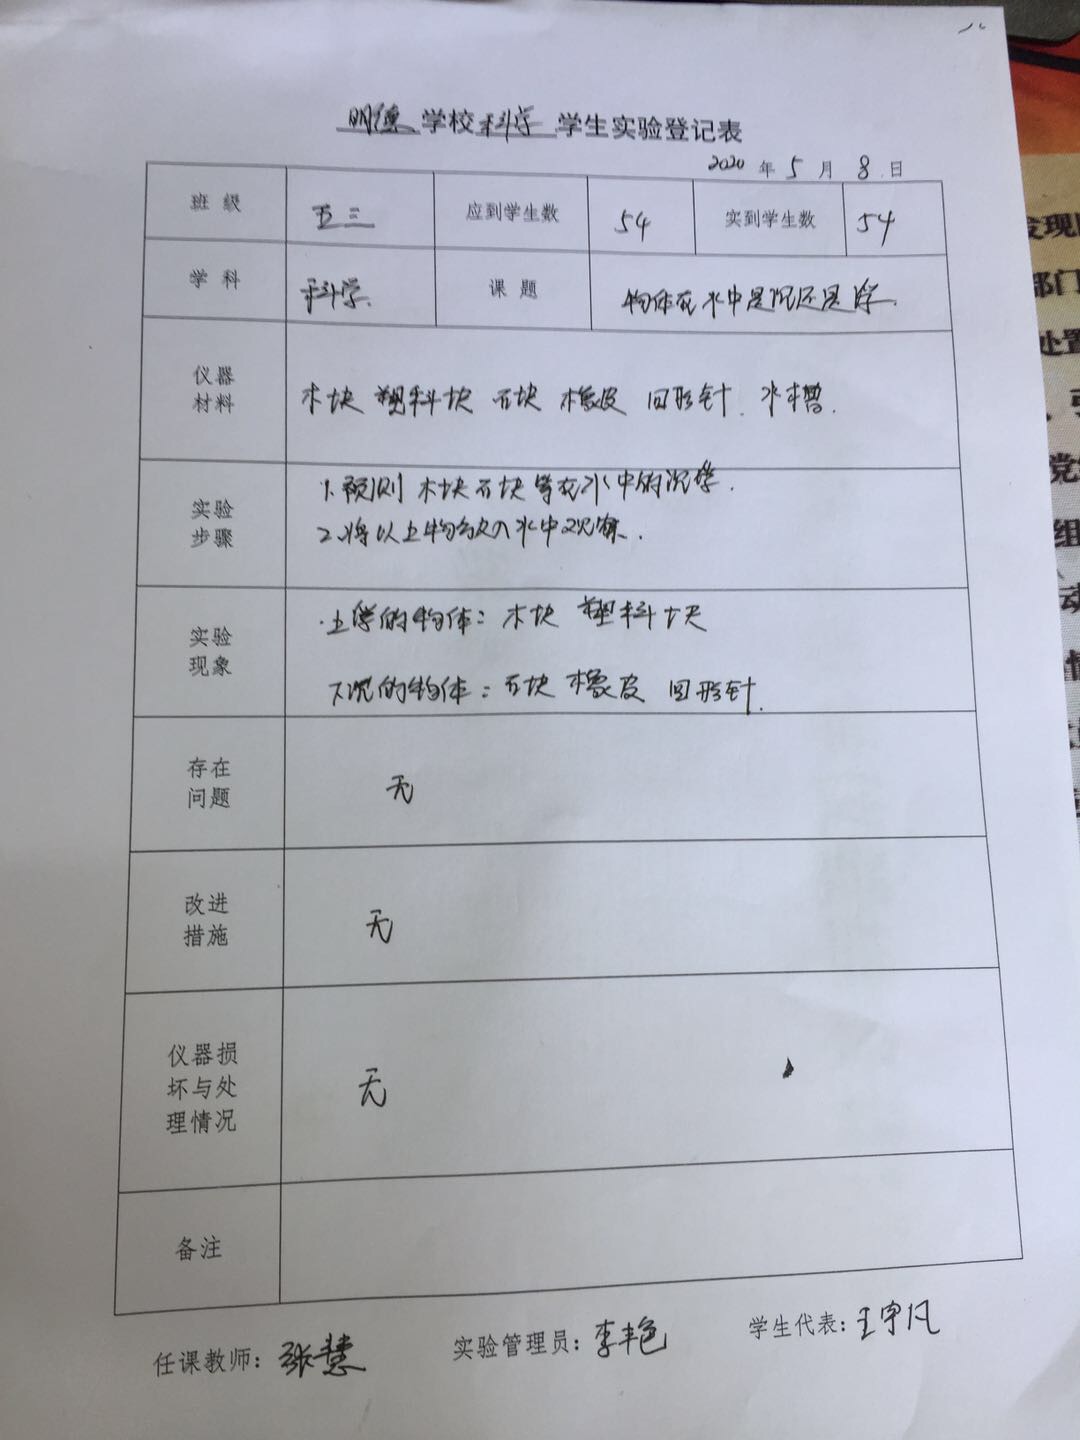 明德学校科学学生实验登记表
2020年5月8日
班级 五三 应到学生数 54 实到学生数 54
学科 科学 课题 物体在水中是沉还是浮
仪器
材料
木块 塑料块 石块 橡皮 回形针 水槽
实验
步骤
1.预测木块石块等在水中的沉浮.
2.将以上物放入水中观察.
实验
现象
上浮的物体:木块 塑料块
下沉的物体:石块 橡皮 回形针.
存在
问题
无
改进
措施
无
仪器损
坏与处
理情况
无
备注
任课教师:张慧 实验管理员:李丰色 学生代表:王宇凡
发现
部门
处置
党
组
动
情